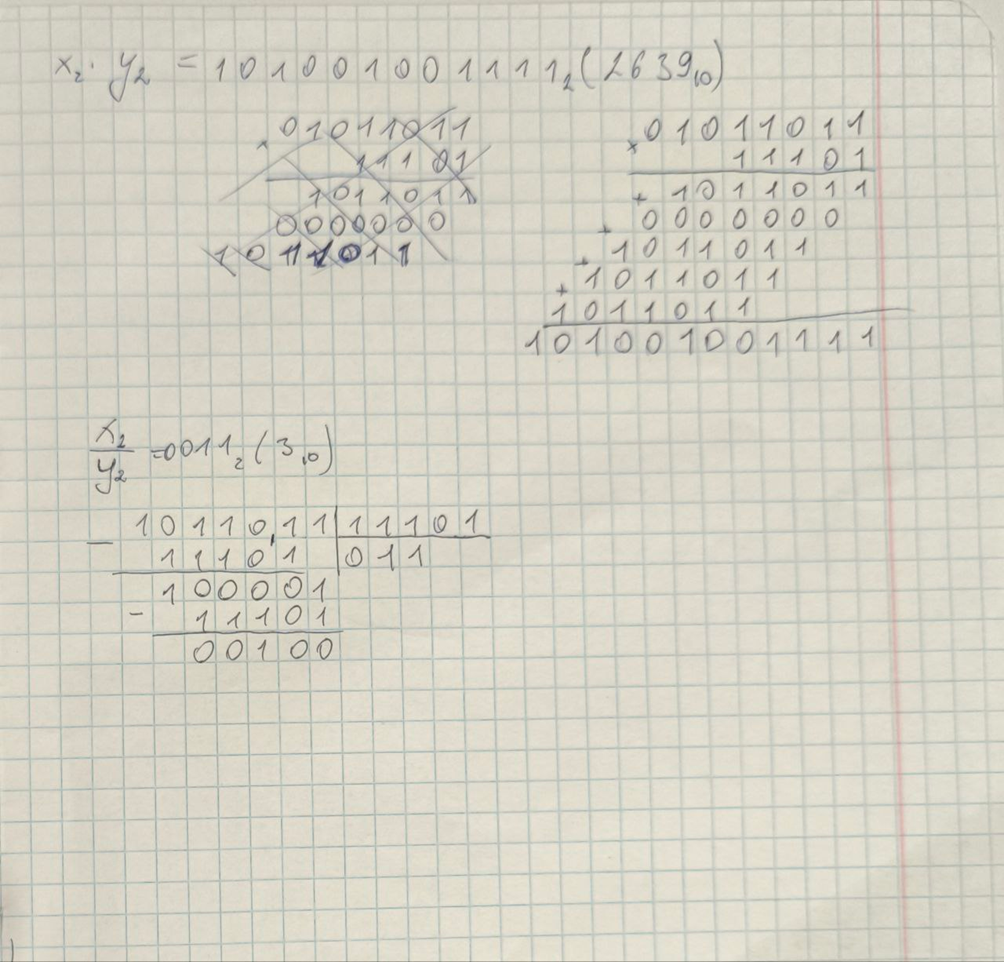 x₂ · y₂ = 1010010011111₂ (2639₁₀)
× 01011011
11101
1011011
0000000
1011011
× 01011011
11101
+ 1011011
+ 0000000
+ 1011011
+ 1011011
1011011
101001001111
x₂
y₂ = 0011₂ (3₁₀)
− 10110,11 | 11101
11101 | 011
100001
− 11101
00100